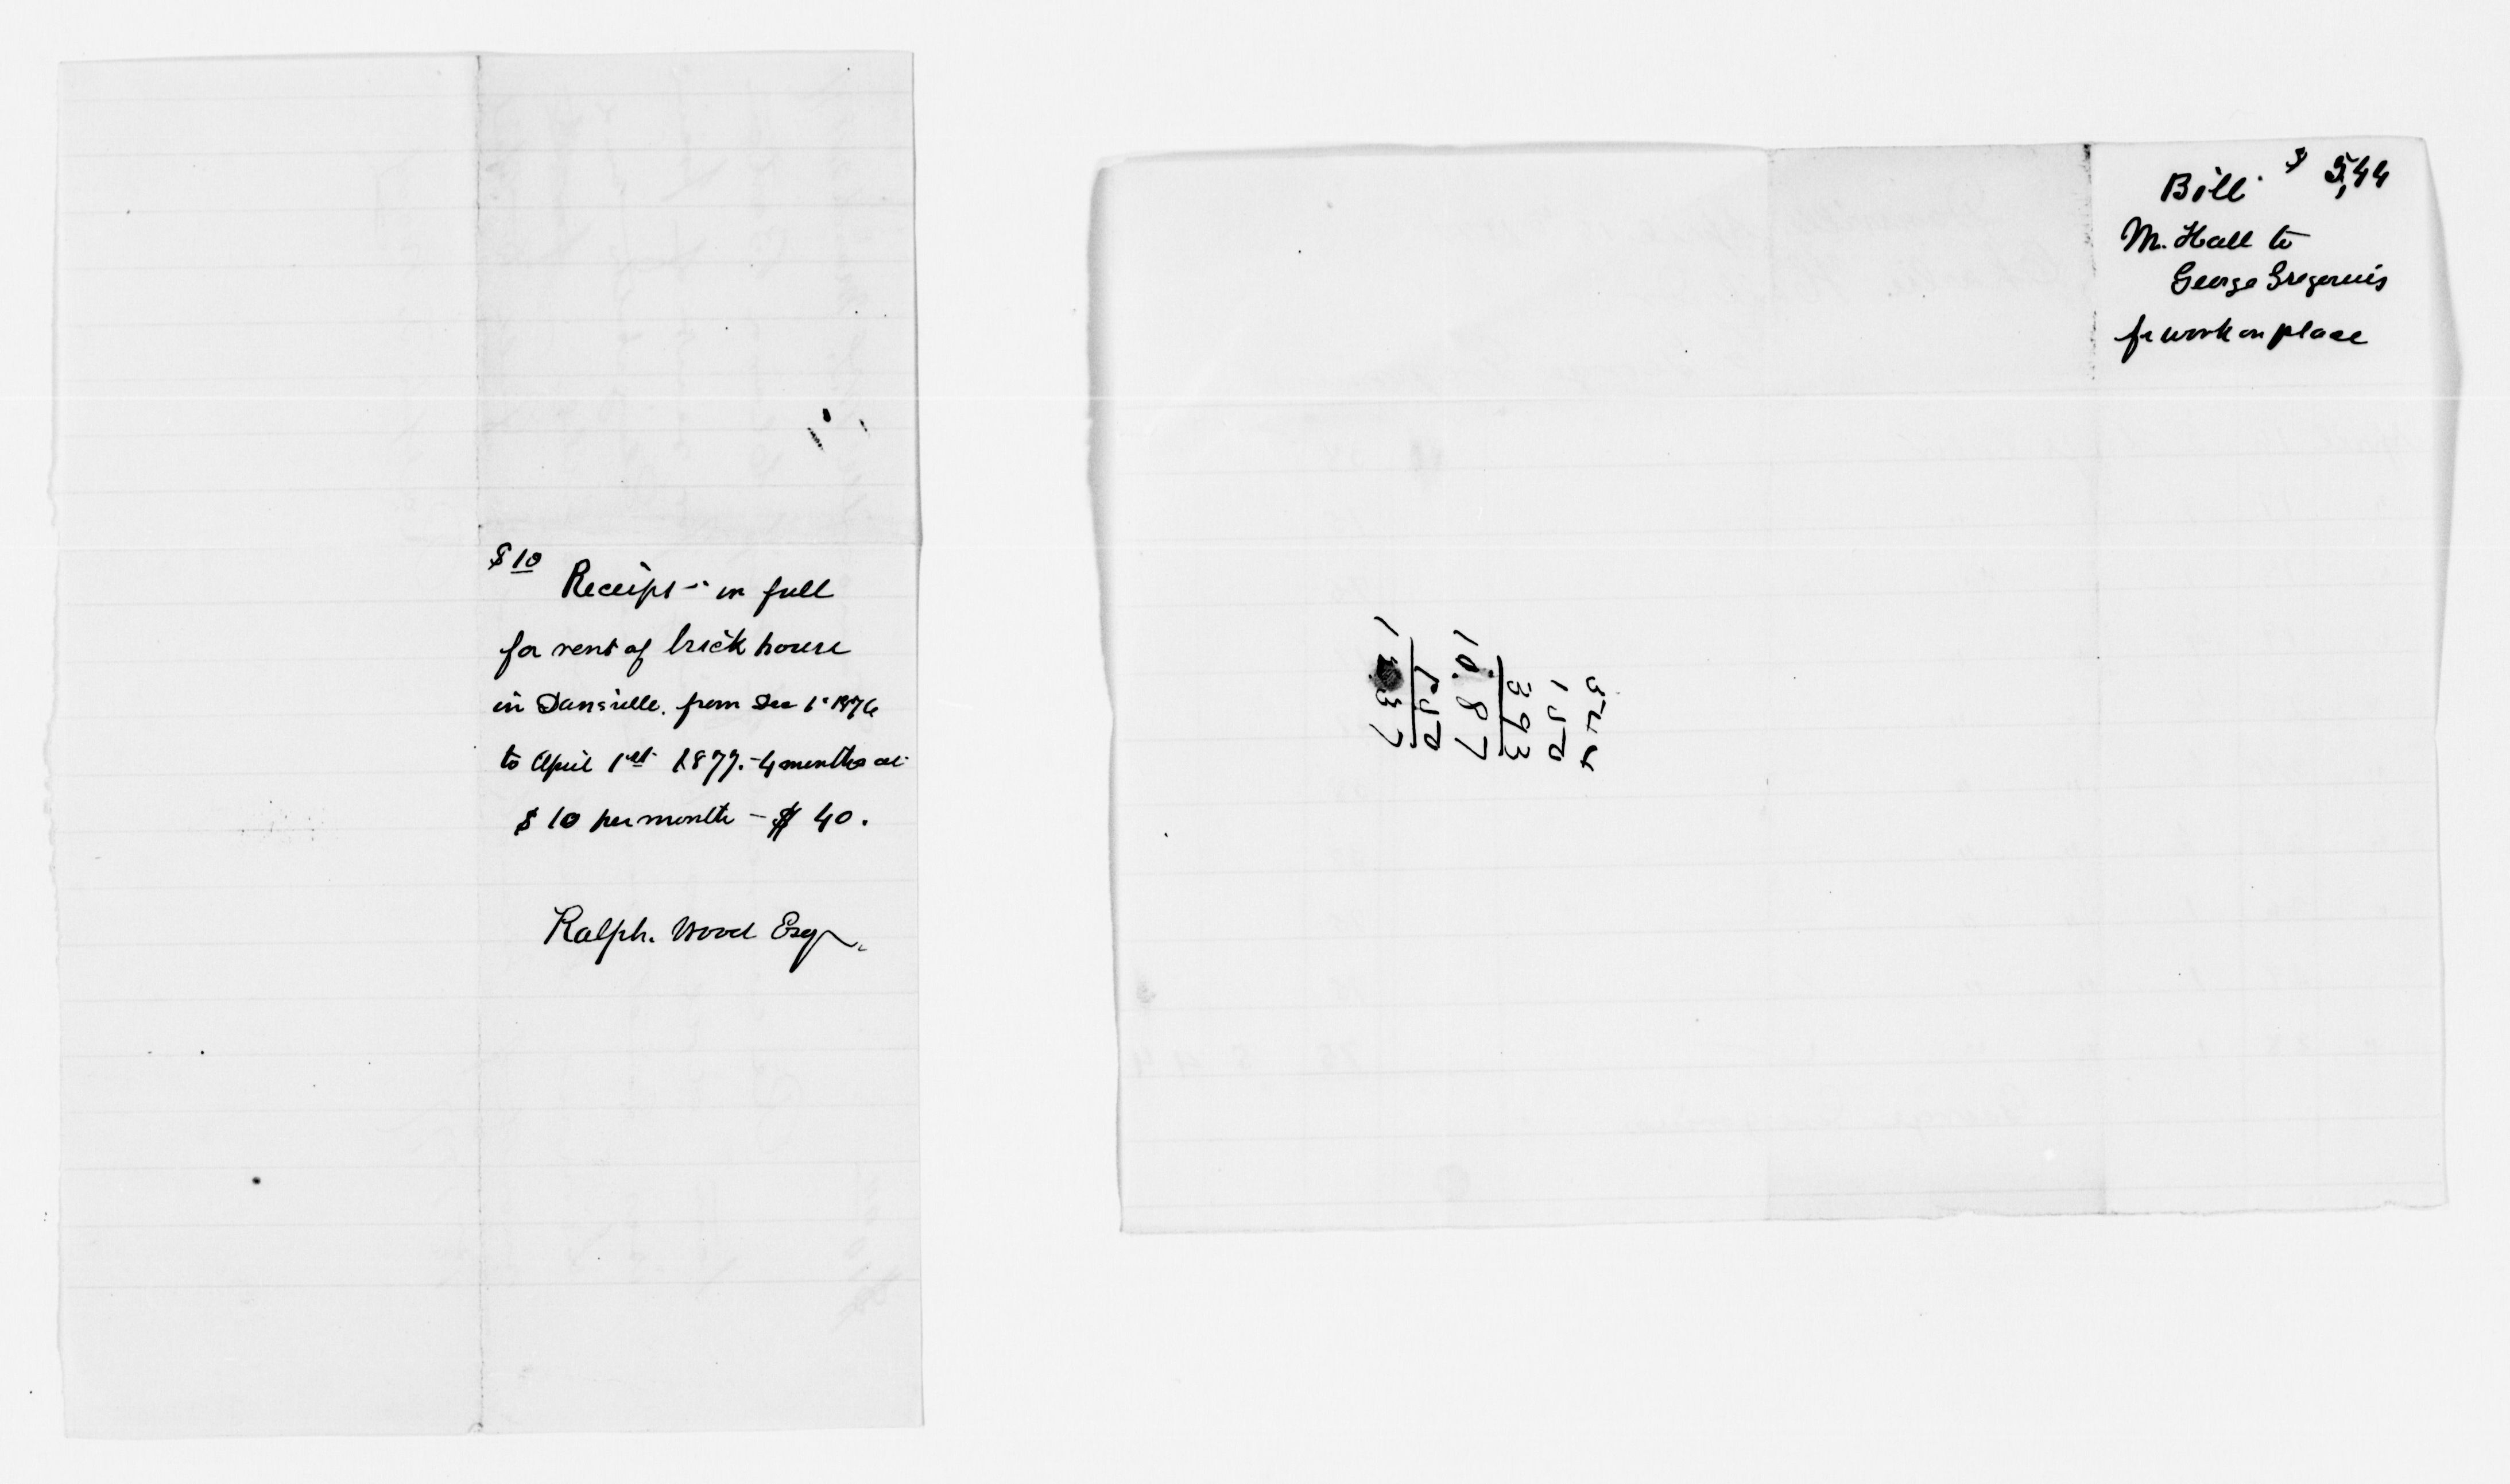 $10
Receipt - in full
for rent of brick house
in Dansville. from Dec 1st 1876
to April 1st 1877. - 4 months at
$ 10 per month - $ 40.
Ralph. Wood Esq.
Bill. $ 5,44
M. Hall to
George
for work on place
5.44
1 50
3 93
10.87
1 50